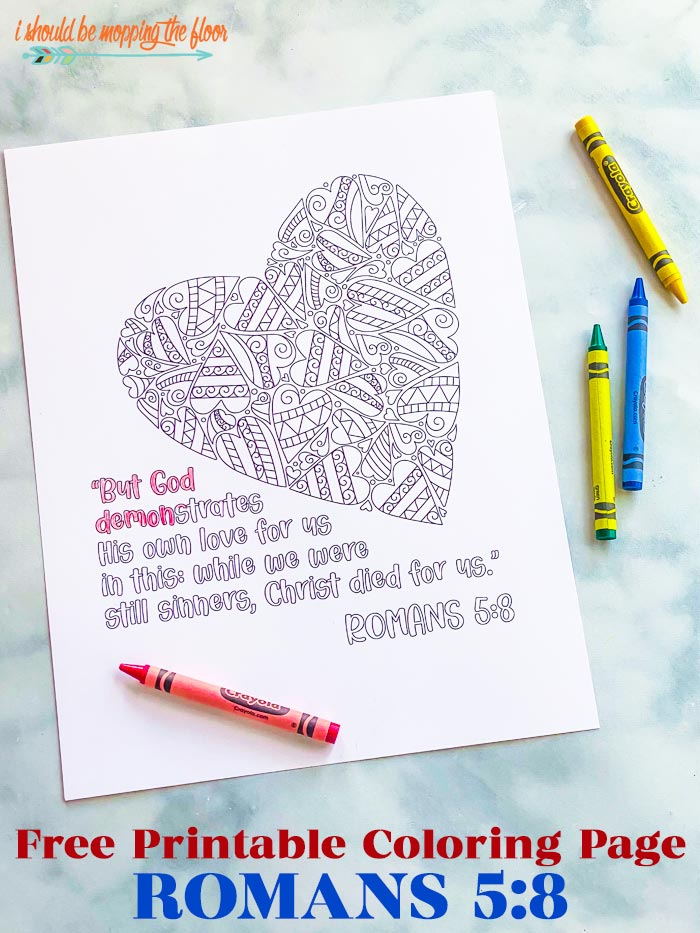 i should be mopping the floor
"But God
demonstrates
His own love for us
in this: while we were
still sinners, Christ died for us."
ROMANS 5:8
Crayola
green
Crayola
Crayola.com
Free Printable Coloring Page
ROMANS 5:8